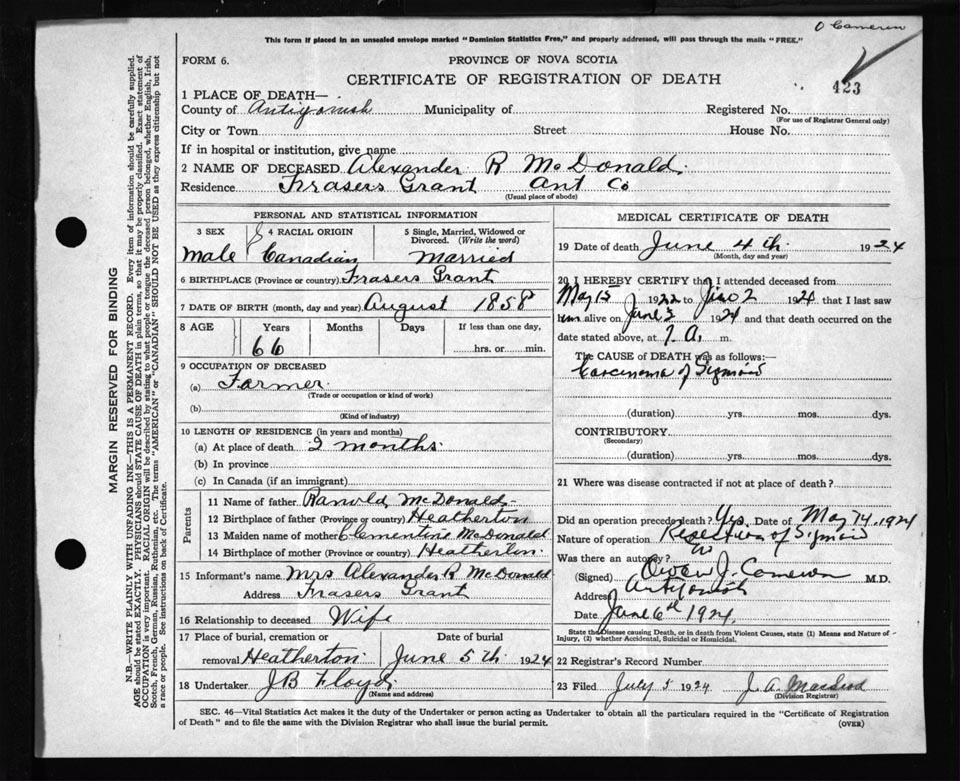 O Cameron
This form if placed in an unsealed envelope marked "Dominion Statistics Free," and properly addressed, will pass through the mails "FREE."
FORM 6.
PROVINCE OF NOVA SCOTIA
CERTIFICATE OF REGISTRATION OF DEATH
423
1 PLACE OF DEATH—
County of Antigonish Municipality of Registered No.
(For use of Registrar General only)
City or Town Street House No.
If in hospital or institution, give name
2 NAME OF DECEASED Alexander R McDonald
Residence Frasers Grant Ant Co
(Usual place of abode)
PERSONAL AND STATISTICAL INFORMATION
3 SEX 4 RACIAL ORIGIN 5 Single, Married, Widowed or Divorced. (Write the word)
Male Canadian Married
6 BIRTHPLACE (Province or country) Frasers Grant
7 DATE OF BIRTH (month, day and year) August 1858
8 AGE Years Months Days If less than one day,
66 hrs. or min.
9 OCCUPATION OF DECEASED
(a) Farmer
(Trade or occupation or kind of work)
(b)
(Kind of industry)
10 LENGTH OF RESIDENCE (in years and months)
(a) At place of death 2 months
(b) In province
(c) In Canada (if an immigrant)
Parents
11 Name of father Ranold McDonald
12 Birthplace of father (Province or country) Heatherton
13 Maiden name of mother Clementine McDonald
14 Birthplace of mother (Province or country) Heatherton
15 Informant's name Mrs Alexander R McDonald
Address Frasers Grant
16 Relationship to deceased Wife
17 Place of burial, cremation or Date of burial
removal Heatherton June 5th 1924
18 Undertaker J B Floyd
(Name and address)
MEDICAL CERTIFICATE OF DEATH
19 Date of death June 4th 1924
(Month, day and year)
20 I HEREBY CERTIFY that I attended deceased from
May 13 1922 to June 2 1924 that I last saw
him alive on June 2 1924 and that death occurred on
date stated above, at 7 A. m.
The CAUSE OF DEATH was as follows:—
Carcinoma of Sigmoid
(duration) yrs. mos. dys.
CONTRIBUTORY
(Secondary)
(duration) yrs. mos. dys.
21 Where was disease contracted if not at place of death?
Did an operation precede death? Yes. Date of May 14, 1924
Nature of operation Resection of Sigmoid
Was there an autopsy? No
(Signed) Owen J. Cameron M.D.
Address Antigonish
Date June 6th 1924.
State the Disease causing Death, or in death from Violent Causes, state (1) Means and Nature of Injury, (2) whether Accidental, Suicidal or Homicidal.
22 Registrar's Record Number
23 Filed July 5 1924 J. A. Macleod
(Division Registrar)
SEC. 46—Vital Statistics Act makes it the duty of the Undertaker or person acting as Undertaker to obtain all the particulars required in the "Certificate of Registration
of Death" and to file the same with the Division Registrar who shall issue the burial permit.
(OVER)
MARGIN RESERVED FOR BINDING
N.B.—WRITE PLAINLY WITH UNFADING INK—THIS IS A PERMANENT RECORD. Every item of information should be carefully supplied.
AGE should be stated EXACTLY. PHYSICIANS should STATE CAUSE OF DEATH in plain terms, so that it may be properly classified. Exact statement of
OCCUPATION is very important. RACIAL ORIGIN will be described by stating to what people or tongue the deceased person belonged, whether English, Irish,
Scotch, French, German, Russian, Ruthenian, etc. The terms "AMERICAN" or "CANADIAN" SHOULD NOT BE USED as they express citizenship but not
a race or people. See instructions on back of Certificate.